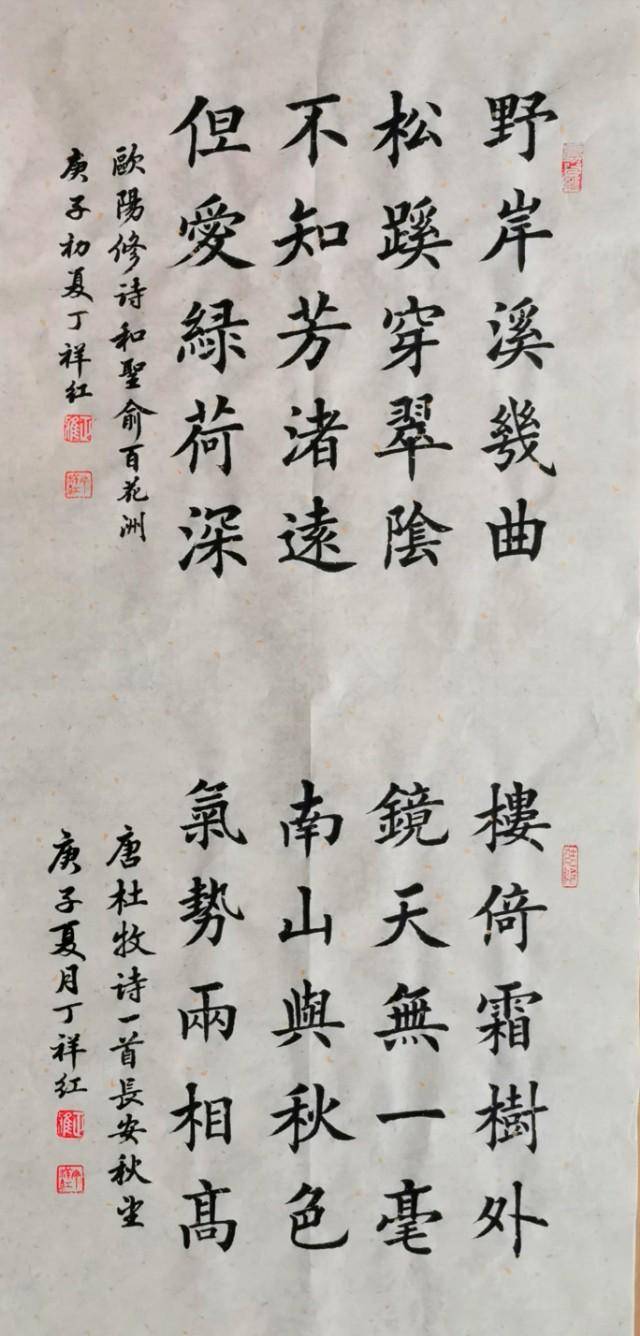 野岸溪幾曲
松蹊穿翠陰
不知芳渚遠
但愛緑荷深
歐陽修诗和聖俞百花洲
庚子初夏丁祥红
樓倚霜樹外
鏡天無一毫
南山與秋色
氣勢兩相高
唐杜牧诗一首長安秋望
庚子夏月丁祥红